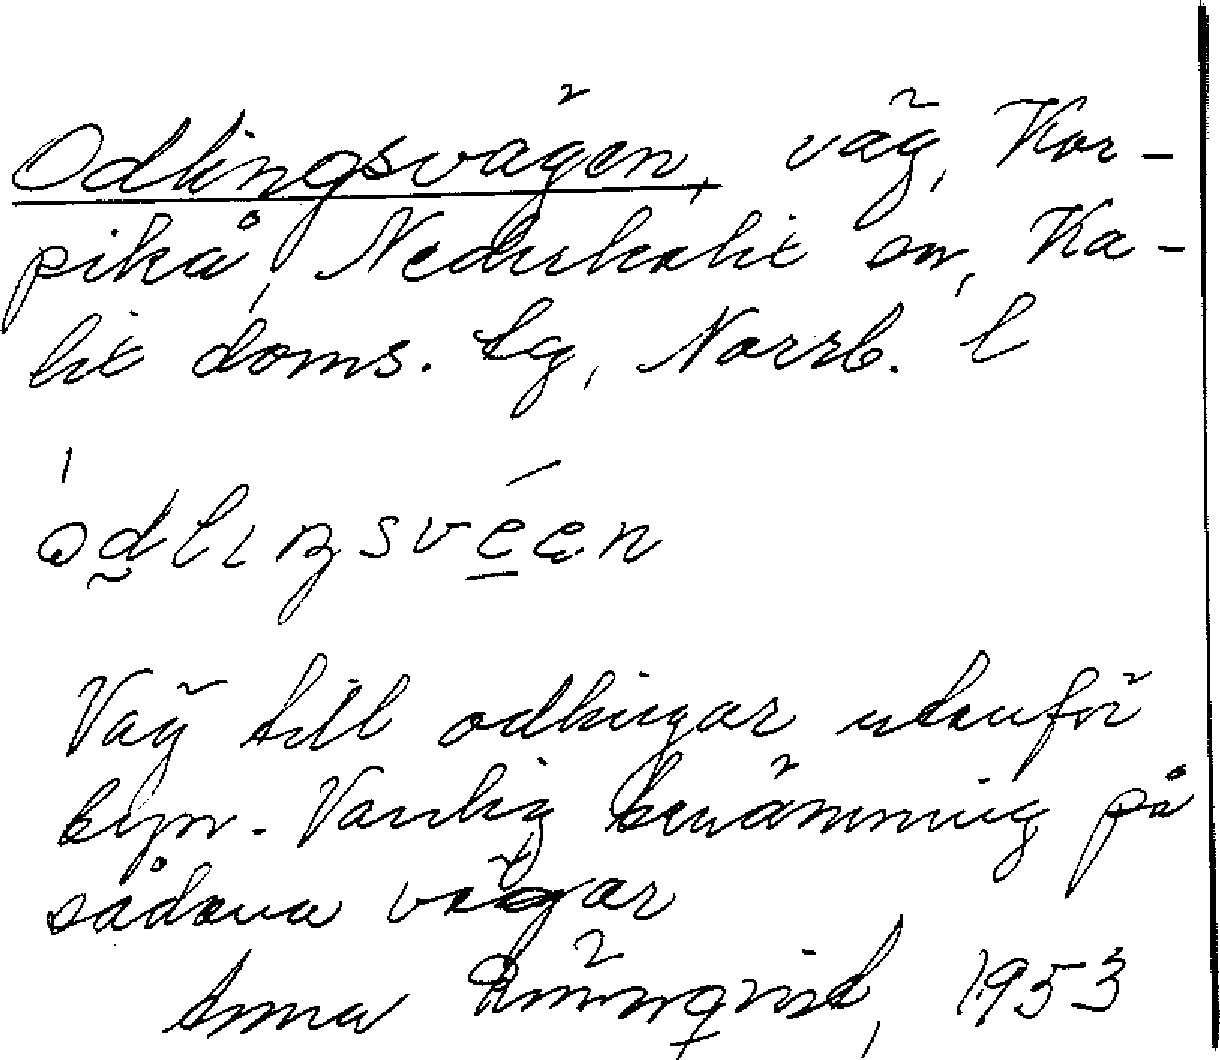 Odlingsvägen, väg, Kor-
pikå, Nederkalix sn, Ka-
lix doms. lg, Norrb. l
ódlıŋsvéen
Väg till odlingar utanför
byn. Vanlig benämning på
sådana vägar
Anna Rönnqvist, 1953